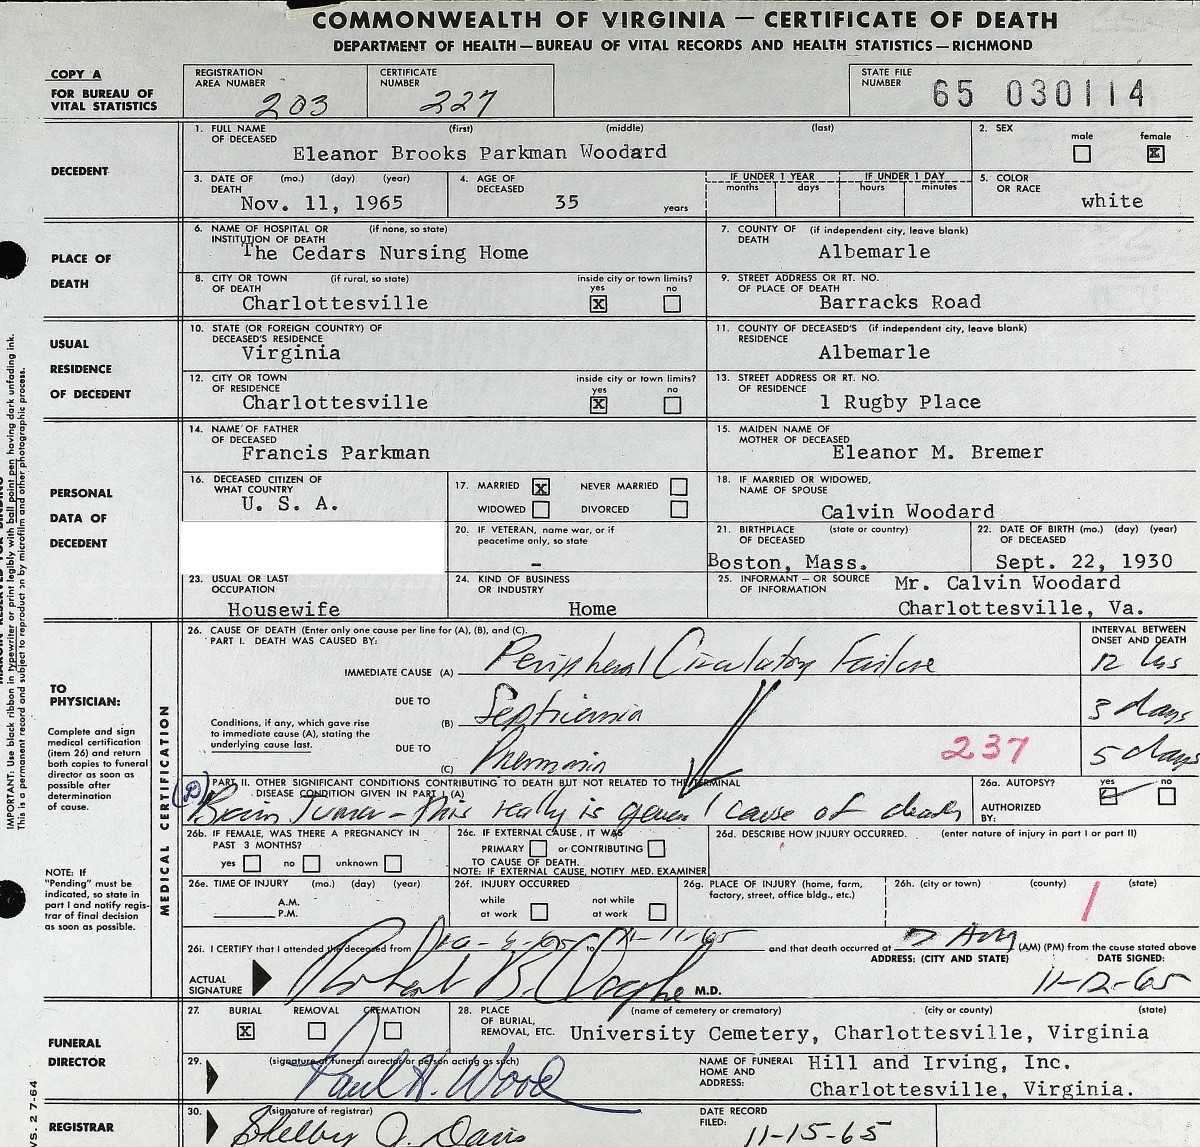 COMMONWEALTH OF VIRGINIA — CERTIFICATE OF DEATH
DEPARTMENT OF HEALTH — BUREAU OF VITAL RECORDS AND HEALTH STATISTICS — RICHMOND
COPY A
FOR BUREAU OF VITAL STATISTICS
REGISTRATION AREA NUMBER 203
CERTIFICATE NUMBER 227
STATE FILE NUMBER 65 030114
DECEDENT
1. FULL NAME OF DECEASED (first) (middle) (last)
Eleanor Brooks Parkman Woodard
2. SEX male female x
3. DATE OF DEATH (mo.) (day) (year)
Nov. 11, 1965
4. AGE OF DECEASED 35 years
IF UNDER 1 YEAR months days
IF UNDER 1 DAY hours minutes
5. COLOR OR RACE white
PLACE OF DEATH
6. NAME OF HOSPITAL OR INSTITUTION OF DEATH (if none, so state)
The Cedars Nursing Home
7. COUNTY OF DEATH (if independent city, leave blank)
Albemarle
8. CITY OR TOWN OF DEATH (if rural, so state) inside city or town limits? yes x no
Charlottesville
9. STREET ADDRESS OR RT. NO. OF PLACE OF DEATH
Barracks Road
USUAL RESIDENCE OF DECEDENT
10. STATE (OR FOREIGN COUNTRY) OF DECEASED'S RESIDENCE
Virginia
11. COUNTY OF DECEASED'S RESIDENCE (if independent city, leave blank)
Albemarle
12. CITY OR TOWN OF RESIDENCE inside city or town limits? yes x no
Charlottesville
13. STREET ADDRESS OR RT. NO. OF RESIDENCE
1 Rugby Place
PERSONAL DATA OF DECEDENT
14. NAME OF FATHER OF DECEASED
Francis Parkman
15. MAIDEN NAME OF MOTHER OF DECEASED
Eleanor M. Bremer
16. DECEASED CITIZEN OF WHAT COUNTRY
U. S. A.
17. MARRIED x NEVER MARRIED
WIDOWED DIVORCED
18. IF MARRIED OR WIDOWED, NAME OF SPOUSE
Calvin Woodard
20. IF VETERAN, name war, or if peacetime only, so state
–
21. BIRTHPLACE OF DECEASED (state or country)
Boston, Mass.
22. DATE OF BIRTH (mo.) (day) (year) OF DECEASED
Sept. 22, 1930
23. USUAL OR LAST OCCUPATION
Housewife
24. KIND OF BUSINESS OR INDUSTRY
Home
25. INFORMANT — OR SOURCE OF INFORMATION
Mr. Calvin Woodard
Charlottesville, Va.
IMPORTANT: Use black ribbon in typewriter or print legibly with ball point pen having dark unfading ink.
This is a permanent record and subject to reproduction by microfilm and other photographic process.
TO PHYSICIAN:
Complete and sign medical certification (item 26) and return both copies to funeral director as soon as possible after determination of cause.
NOTE: If "Pending" must be indicated, so state in part I and notify registrar of final decision as soon as possible.
MEDICAL CERTIFICATION
26. CAUSE OF DEATH (Enter only one cause per line for (A), (B), and (C).
PART I. DEATH WAS CAUSED BY:
INTERVAL BETWEEN ONSET AND DEATH
IMMEDIATE CAUSE (A) Peripheral Circulatory Failure 12 hrs
DUE TO (B) Septicemia 3 days
Conditions, if any, which gave rise to immediate cause (A), stating the underlying cause last.
DUE TO (C) 237 5 days
PART II. OTHER SIGNIFICANT CONDITIONS CONTRIBUTING TO DEATH BUT NOT RELATED TO THE TERMINAL DISEASE CONDITION GIVEN IN PART I (A)
(D) Brain Tumor - this really is general cause of death
26a. AUTOPSY? yes no
AUTHORIZED BY:
26b. IF FEMALE, WAS THERE A PREGNANCY IN PAST 3 MONTHS?
yes no unknown
26c. IF EXTERNAL CAUSE, IT WAS
PRIMARY or CONTRIBUTING
TO CAUSE OF DEATH.
NOTE: IF EXTERNAL CAUSE, NOTIFY MED. EXAMINER
26d. DESCRIBE HOW INJURY OCCURRED. (enter nature of injury in part I or part II)
26e. TIME OF INJURY (mo.) (day) (year)
A.M.
P.M.
26f. INJURY OCCURRED
while at work not while at work
26g. PLACE OF INJURY (home, farm, factory, street, office bldg., etc.)
26h. (city or town) (county) (state)
1
26i. I CERTIFY that I attended the deceased from to 11-11-65 and that death occurred at 7 Am (AM) (PM) from the cause stated above
ADDRESS: (CITY AND STATE) DATE SIGNED:
ACTUAL SIGNATURE Robert B. M.D. 11-12-65
FUNERAL DIRECTOR
27. BURIAL x REMOVAL CREMATION
28. PLACE OF BURIAL, REMOVAL, ETC. (name of cemetery or crematory) (city or county) (state)
University Cemetery, Charlottesville, Virginia
29. (signature of funeral director or person acting as such)
Paul H. Wood
NAME OF FUNERAL HOME AND ADDRESS:
Hill and Irving, Inc.
Charlottesville, Virginia.
REGISTRAR
30. (signature of registrar)
Shelby J. Davis
DATE RECORD FILED: 11-15-65
VS. 2 7-64